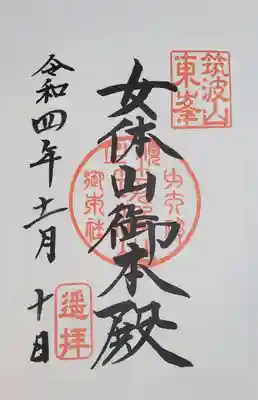 筑波山
東峯
女体山御本殿
令和四年十一月
十日
遥拝